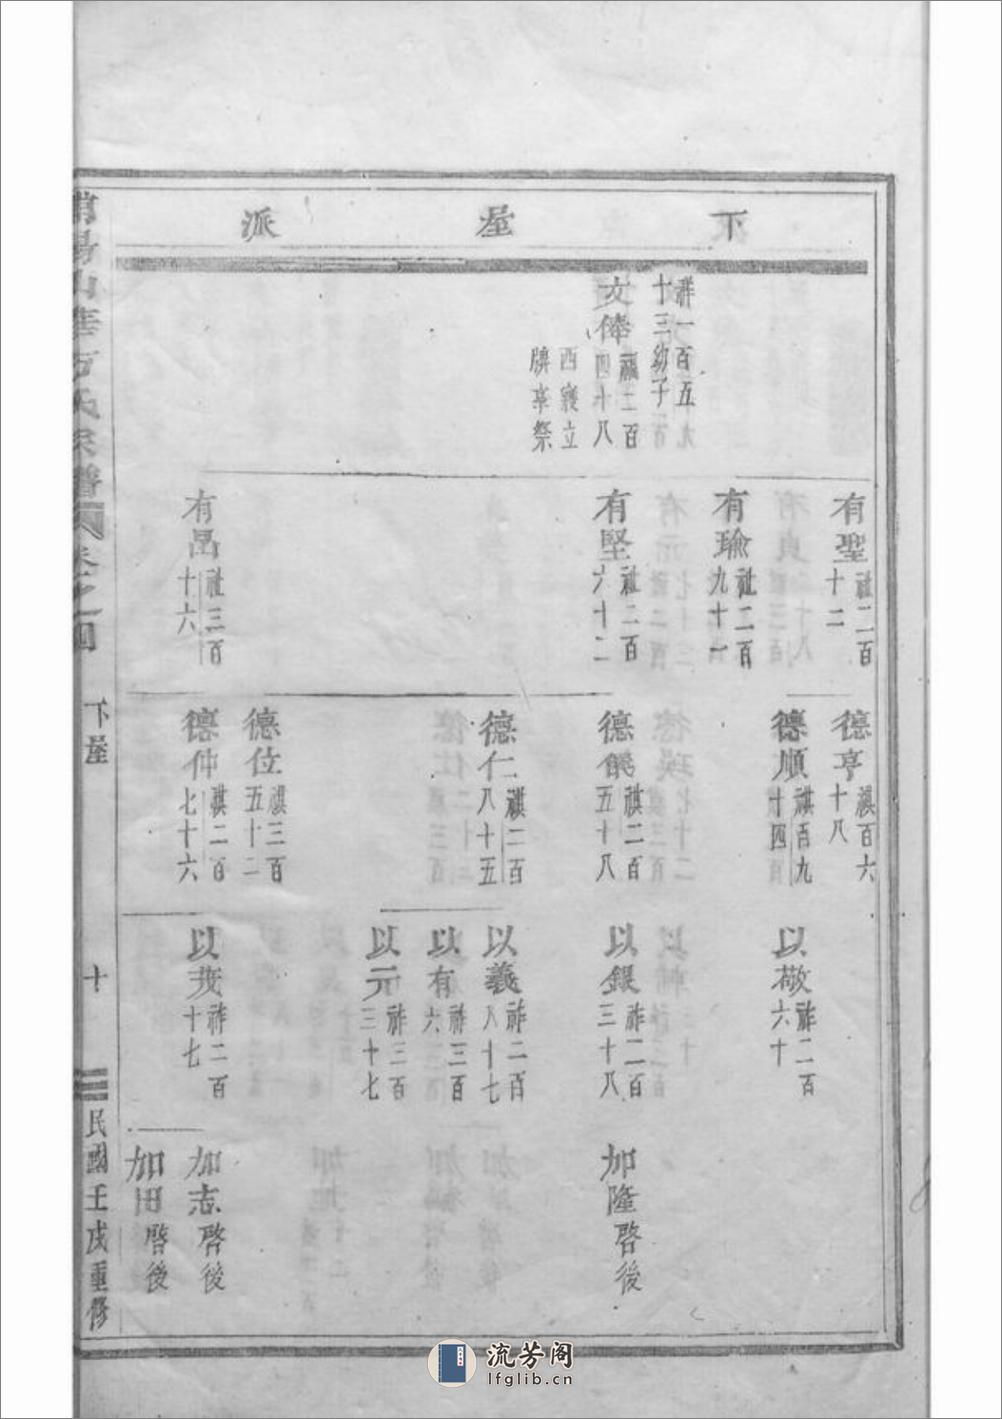 下屋派
祥一百五十三幼子
文俸
禑二百四十八
西寢立
牌享祭
有聖
祉二百十二
有瑜
祉二百九十一
有堅
祉二百六十二
有昌
祉三百十六
德亨
祺百六十八
德順
祺百九十四
德
祺二百五十八
德仁
祺二百八十五
德位
祺三百五十二
德仲
祺二百七十六
以敬
祚二百六十
以銀
祚二百三十八
以義
祚二百八十七
以有
祚三百六
以元
祚三百三十七
以茂
祚二百十七
加隆啓後
加志啓後
加田啓後
氏宗譜
卷之四
下屋
十
民國壬戌重修
流芳阁
lfglib.cn